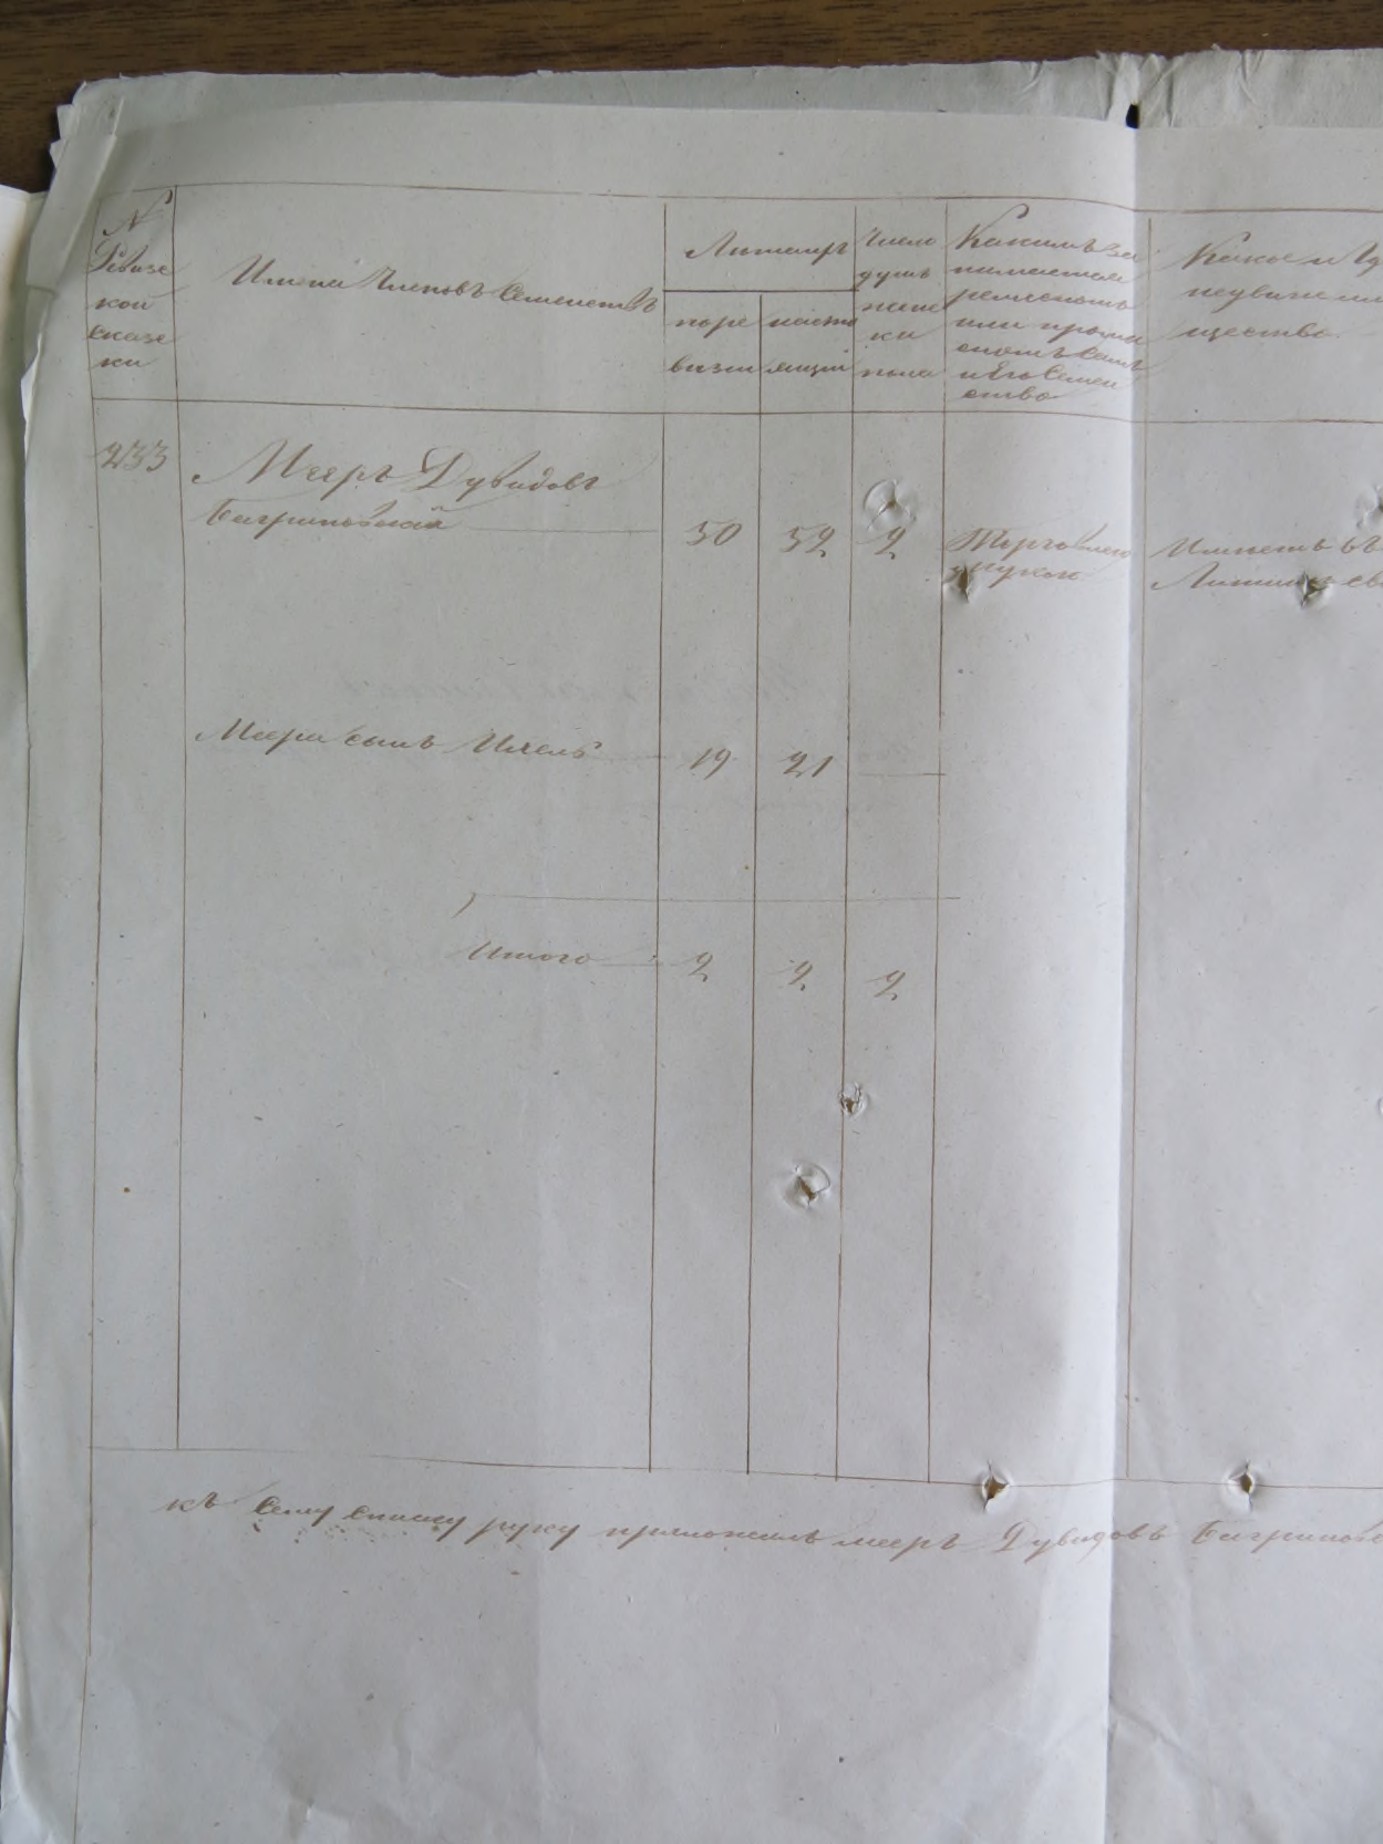 №
Ревизс
кой
сказс
ки
Имена Членовъ Семействъ
Летамъ
поре
визіи
насто
ящій
Число
душъ
женс
ка
пола
Какимъ за
нимается
ремесломъ
или промы
сломъ Самъ
и Его Семей
ство
Какое и Гд
недвижим
щество
233
Мееръ Дувидовъ
Багриновскій
50
52
2
Торговлею
Имеетъ въ
Меера сынъ Ихель
19
21
Итого
2
2
2
къ сему списку руку приложилъ мееръ Дувидовъ Багриновс